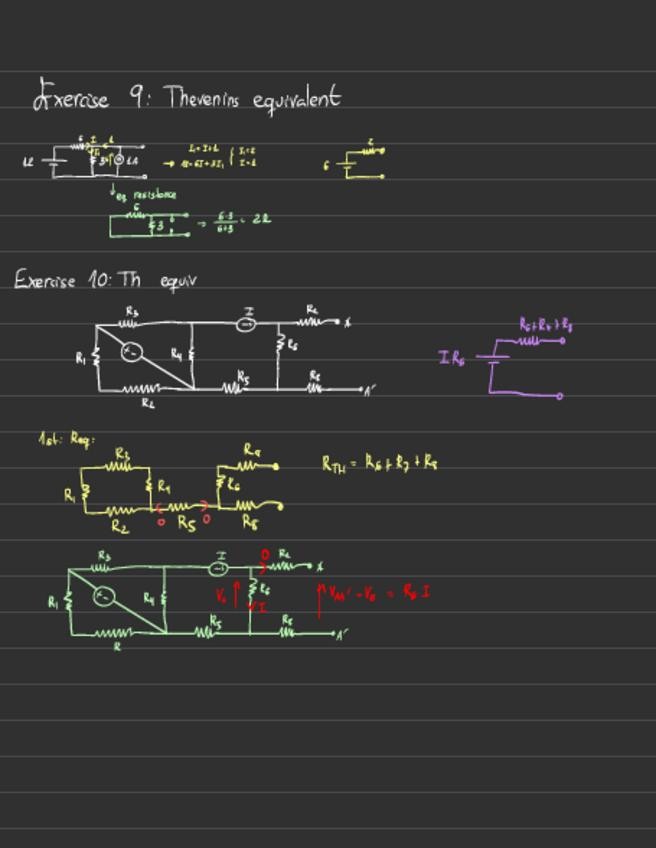 Exercise 9: Thevenins equivalent
6 I 1
12
3
1A
I₁=I+1
12=6I+3I₁
I₁=2
I=1
2
6
eq resistance
6
3
= 6·3/6+3 = 2Ω
Exercise 10: Th equiv
R₃
I
A
R₁
R₄
R₆
R₅
R₈
A'
R₂
R₆+R₇+R₈
I R₆
1st: Req:
R₃
R₁
R₄
R₆
R₂
0
R₅
0
R₈
R_TH = R₆+R₇+R₈
R₃
I
0
A
R₁
R₄
V₆
R₆
I
R₅
R₈
A'
R
V_AA' = V₆ = R₆ I